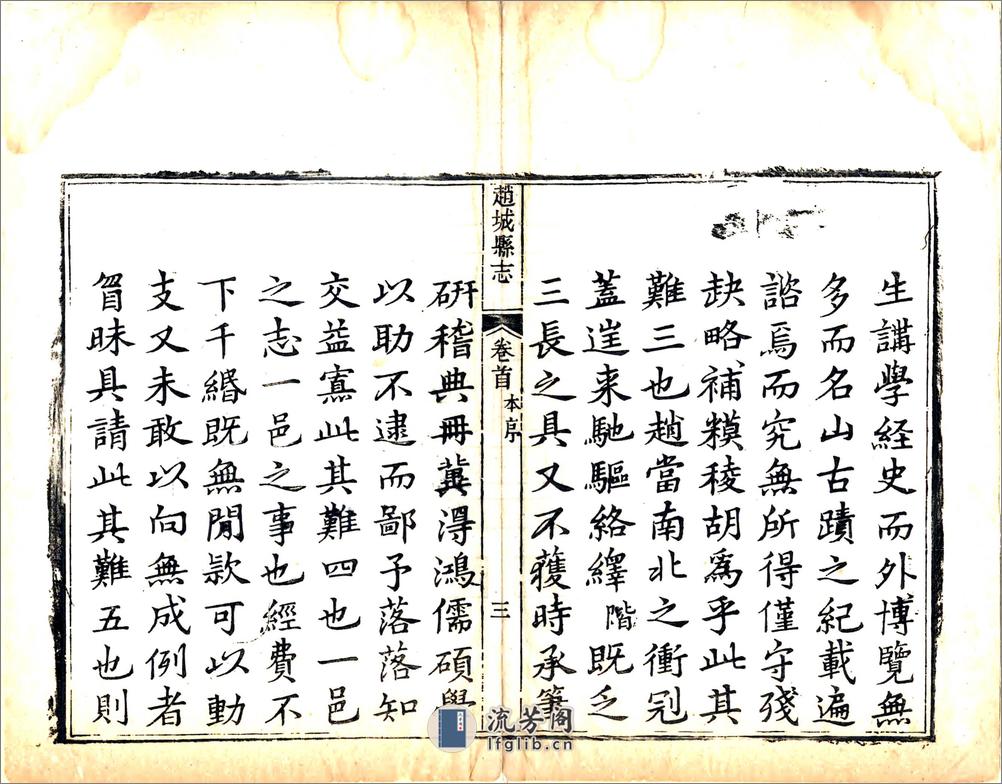 生講學経史而外博覽無
多而名山古蹟之紀載遍
諮焉而究無所得僅守殘
缺略補糢稜胡爲乎此其
難三也趙當南北之衝冠
蓋遑来馳驅絡繹階既乏
三長之具又不獲時承筆
趙城縣志
卷首
本序
三
硏稽典冊冀得鴻儒碩學
以助不逮而鄙予落落知
交益寡此其難四也一邑
之志一邑之事也經費不
下千緡既無閒款可以動
支又未敢以向無成例者
冒昧具請此其難五也則
流芳阁
lfglib.cn